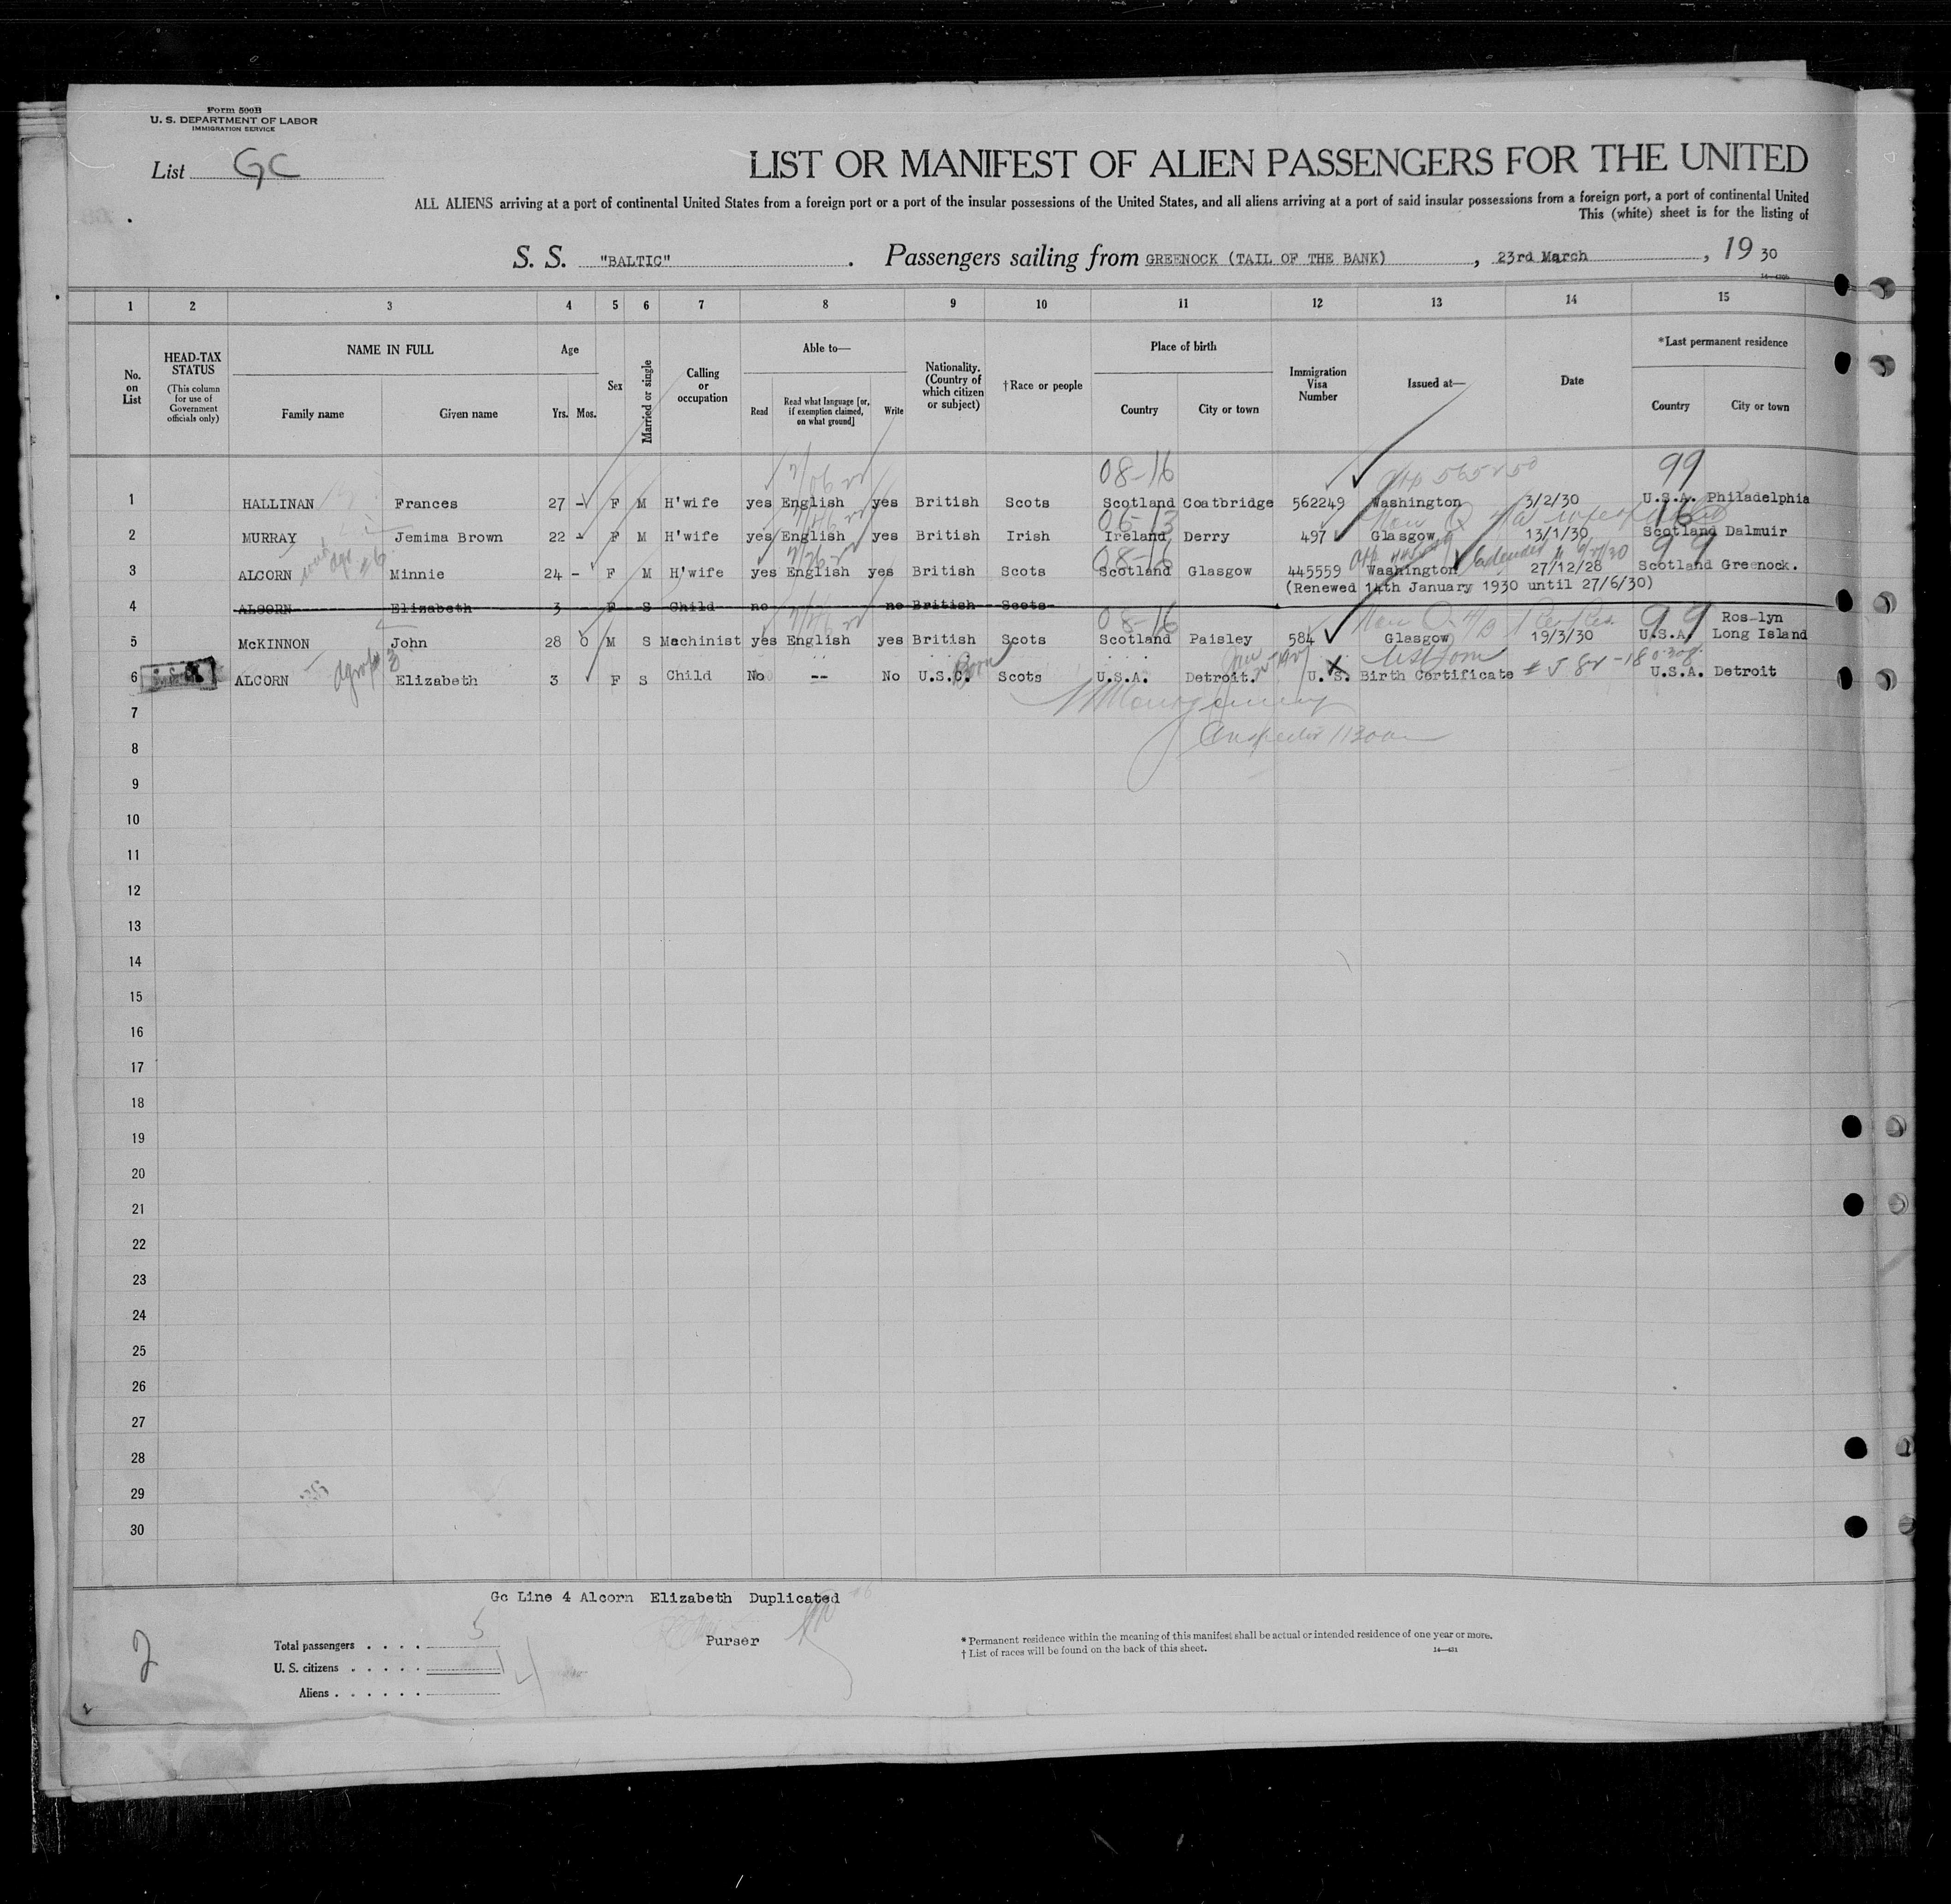 Form 500B
U. S. DEPARTMENT OF LABOR
IMMIGRATION SERVICE
List GC
LIST OR MANIFEST OF ALIEN PASSENGERS FOR THE UNITED
ALL ALIENS arriving at a port of continental United States from a foreign port or a port of the insular possessions of the United States, and all aliens arriving at a port of said insular possessions from a foreign port, a port of continental United
This (white) sheet is for the listing of
S. S. "BALTIC". Passengers sailing from GREENOCK (TAIL OF THE BANK), 23rd March, 19 30
1 2 3 4 5 6 7 8 9 10 11 12 13 14 15
No. on List
HEAD-TAX STATUS (This column for use of Government officials only)
NAME IN FULL Family name Given name
Age Yrs. Mos.
Sex
Married or single
Calling or occupation
Able to— Read Read what language [or, if exemption claimed, on what ground] Write
Nationality. (Country of which citizen or subject)
†Race or people
Place of birth Country City or town
Immigration Visa Number
Issued at—
Date
*Last permanent residence Country City or town
08-16 99
1 HALLINAN Frances 27 - F M H'wife yes English yes British Scots Scotland Coatbridge 562249 Washington 3/2/30 U.S.A. Philadelphia
06-13 16
2 MURRAY Jemima Brown 22 - F M H'wife yes English yes British Irish Ireland Derry 497 Glasgow 13/1/30 Scotland Dalmuir
08-16 99
3 ALCORN Minnie 24 - F M H'wife yes English yes British Scots Scotland Glasgow 445559 Washington 27/12/28 Scotland Greenock.
(Renewed 14th January 1930 until 27/6/30)
4 ALCORN Elizabeth 3 F S Child no no British Scots
08-16 99
5 McKINNON John 28 0 M S Machinist yes English yes British Scots Scotland Paisley 584 Glasgow 19/3/30 U.S.A. Ros-lyn Long Island
6 ALCORN Elizabeth 3 F S Child No -- No U.S.C. Born Scots U.S.A. Detroit. U.S. Birth Certificate U.S.A. Detroit
7
8
Inspector 1130am
9
10
11
12
13
14
15
16
17
18
19
20
21
22
23
24
25
26
27
28
29
30
Gc Line 4 Alcorn Elizabeth Duplicated
Purser
2
Total passengers . . . . 5
U. S. citizens . . . . . 1
Aliens . . . . . . 4
* Permanent residence within the meaning of this manifest shall be actual or intended residence of one year or more.
† List of races will be found on the back of this sheet.